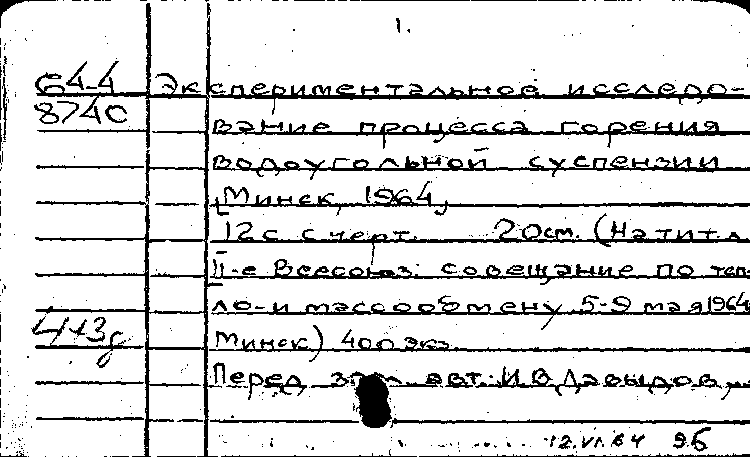 1.
64-4 Экспериментальное исследо-
8740 вание процесса горения
водоугольной суспензии
[Минск, 1964]
12 с с черт. 20 см. (На тит. л.
II-е Всесоюз. совещание по теп-
ло- и массообмену 5-9 мая 1964
Минск) 400 экз.
Перед загл. авт: И.В. Давыдов,
12.VI.64 96